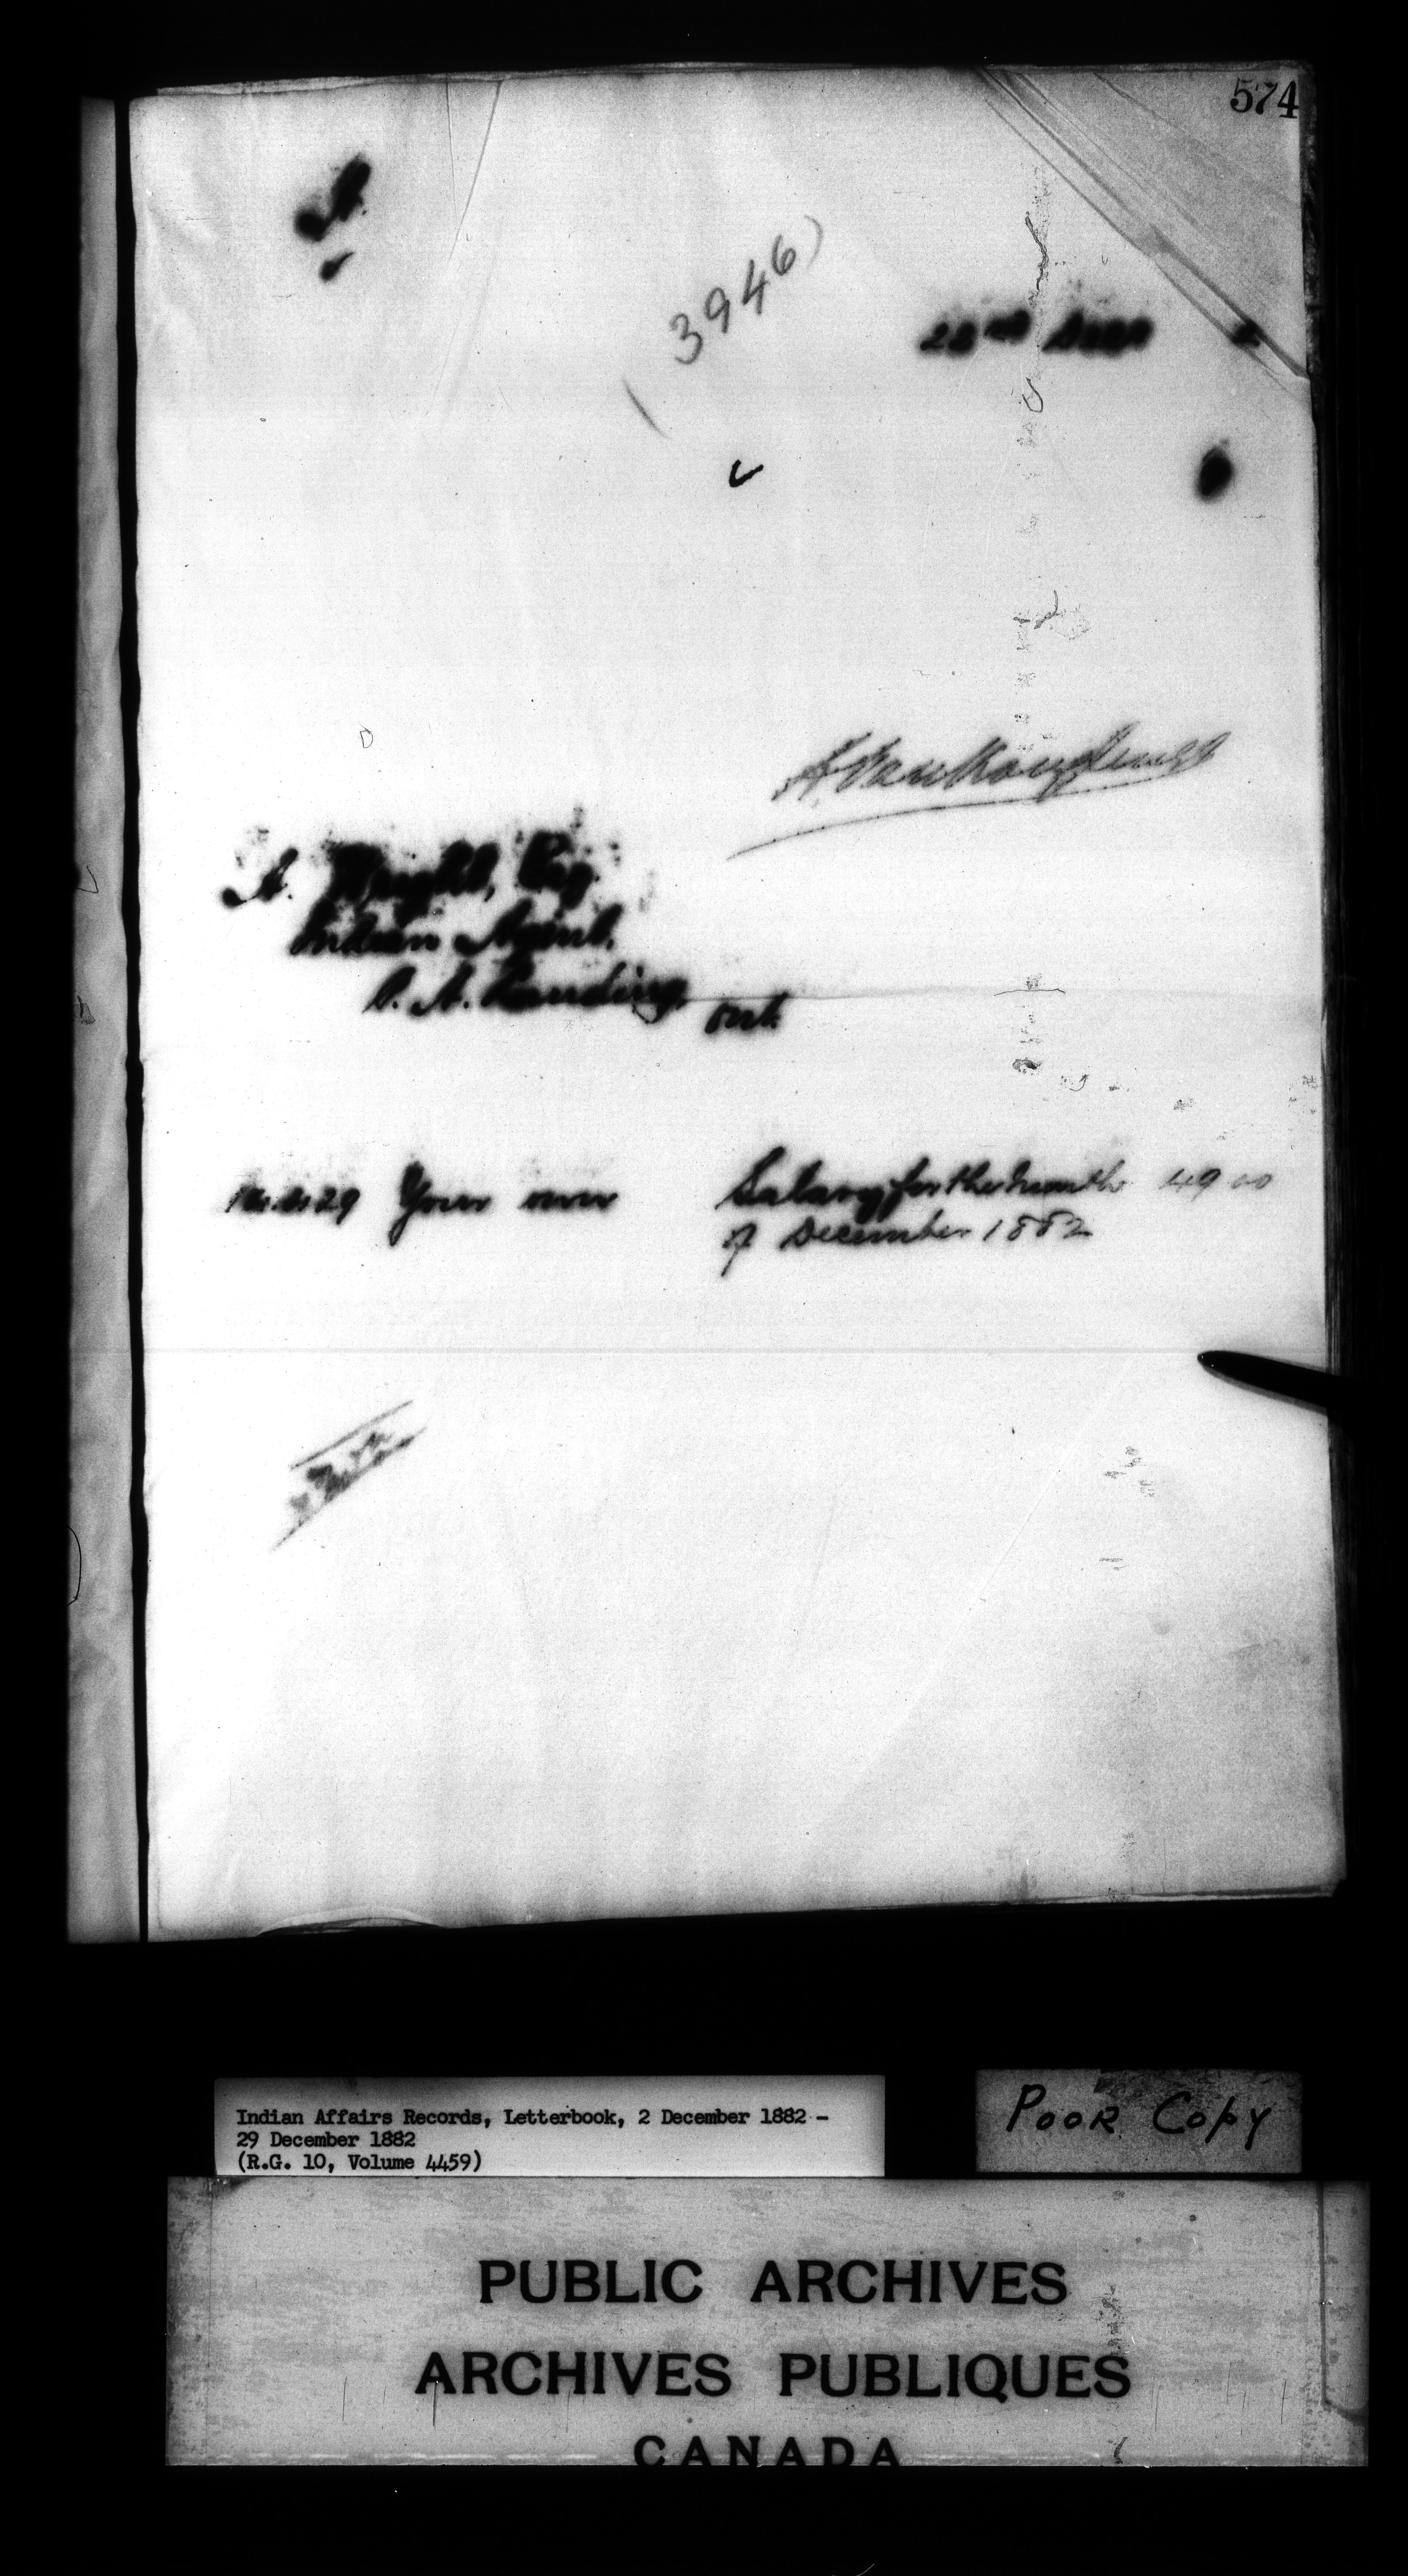 574
A.
(3946)
22nd Decr 2
A. Wright, Esq.
Indian Agent,
P. A. Landing, Ont.
29 Your own Salary for the month 49 00
of December 1882
Indian Affairs Records, Letterbook, 2 December 1882 -
29 December 1882
(R.G. 10, Volume 4459)
POOR COPY
PUBLIC ARCHIVES
ARCHIVES PUBLIQUES
CANADA